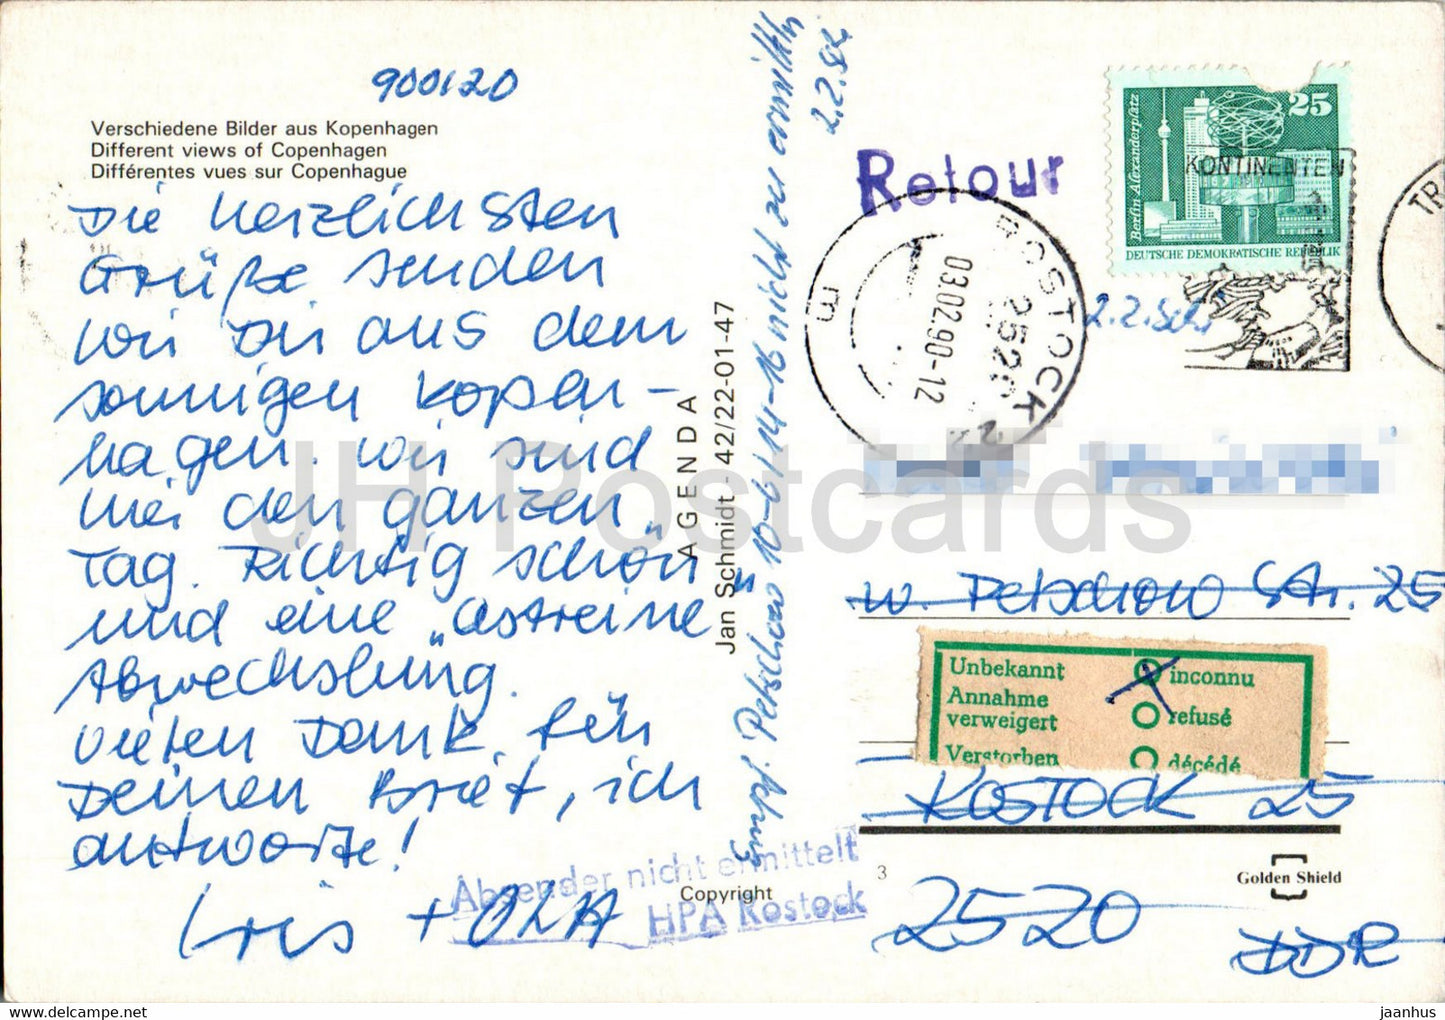 900120
Verschiedene Bilder aus Kopenhagen
Different views of Copenhagen
Différentes vues sur Copenhague
Die herzlichsten
Grüße senden
wir Dir aus dem
sonnigen Kopen-
hagen. Wir sind
hier den ganzen
Tag. Richtig schön
und eine "astreine"
Abwechslung.
Vielen Dank für
Deinen Brief, ich
antworte!
Iris + OLA
AGENDA
Jan Schmidt - 42/22-01-47
Copyright
Empf. Petschow Str. 10-6, 14-16 nicht zu ermitteln
2.2.
Retour
25
Berlin-Alexanderplatz
DEUTSCHE DEMOKRATISCHE REPUBLIK
KONTINENTEN
TR
ROSTOCK 2
2520
03.02.90-12
2.2.
w. Petschow Str. 25
Unbekannt inconnu
Annahme
verweigert refusé
Verstorben décédé
ROSTOCK 25
2520
DDR
3
Golden Shield
Absender nicht ermittelt
HPA Rostock
JH Postcards
hip-me.com
jaanhus